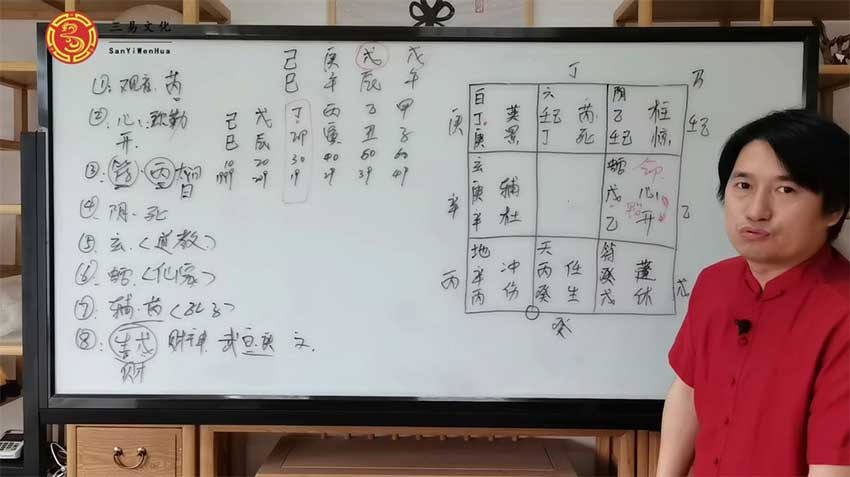 三易文化
SanYiWenHua
己 庚 戊 戊
巳 午 辰 午
①: 观音. 芮
②: 心: 弥勒
开
己 戊 丁 丙 乙 甲
巳 辰 卯 寅 丑 子
10 20 30 40 50 60
1999 29 19 29 39 49
③: 符. 丙
④: 阴. 死
⑤: 玄. (道教.)
⑥: 蛇. (仙家)
⑦: 辅. 芮 (孔子)
⑧: 生戊 财神 武 庚 文.
财
丁
庚 壬己
辛 乙
丙 戊
癸
白 丁 庚 英 景
六 壬己 丁 芮 死
阴 乙 壬己 柱 惊
玄 庚 辛 辅 杜
蛇 戊 乙 心 开
地 辛 丙 冲 伤
天 丙 癸 任 生
符 癸 戊 蓬 休